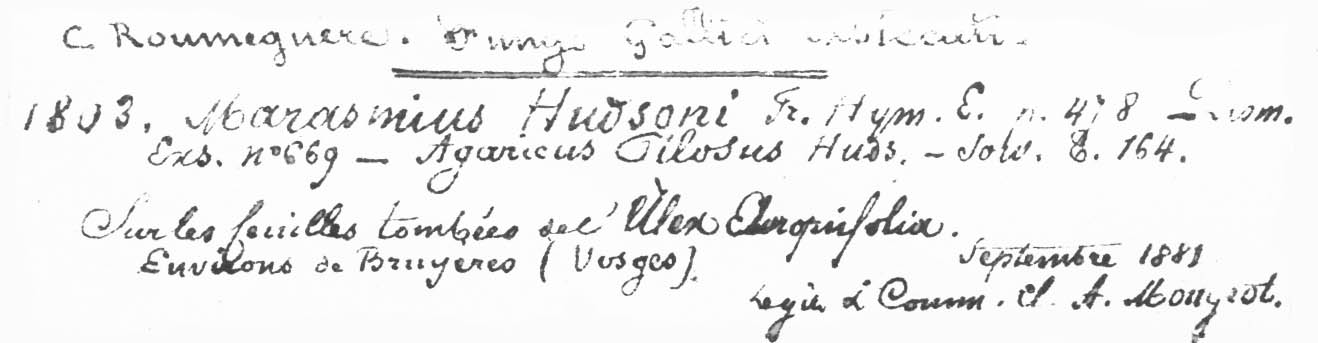 C. Roumeguere. Fungi Gallici exsiccati.
1803. Marasmius Hudsoni Fr. Hym. E. n. 478
Exs. nº 669 — Agaricus Pilosus Huds. – Sow. E. 164.
Sur les feuilles tombées de l' Ulex
Environs de Bruyeres (Vosges).
Septembre 1881
Legit & Comm. A. Mougeot.